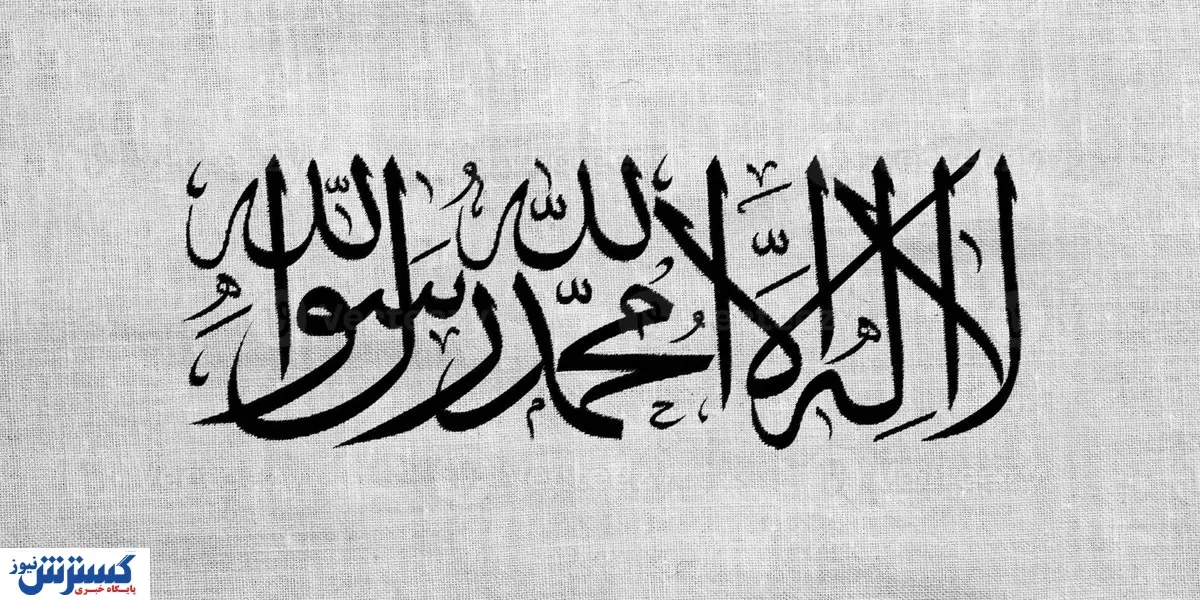 لا إِلٰهَ إِلَّا اللّٰهُ مُحَمَّدٌ رَسُولُ اللّٰهِ
گسترش نیوز
پایگاه خبری